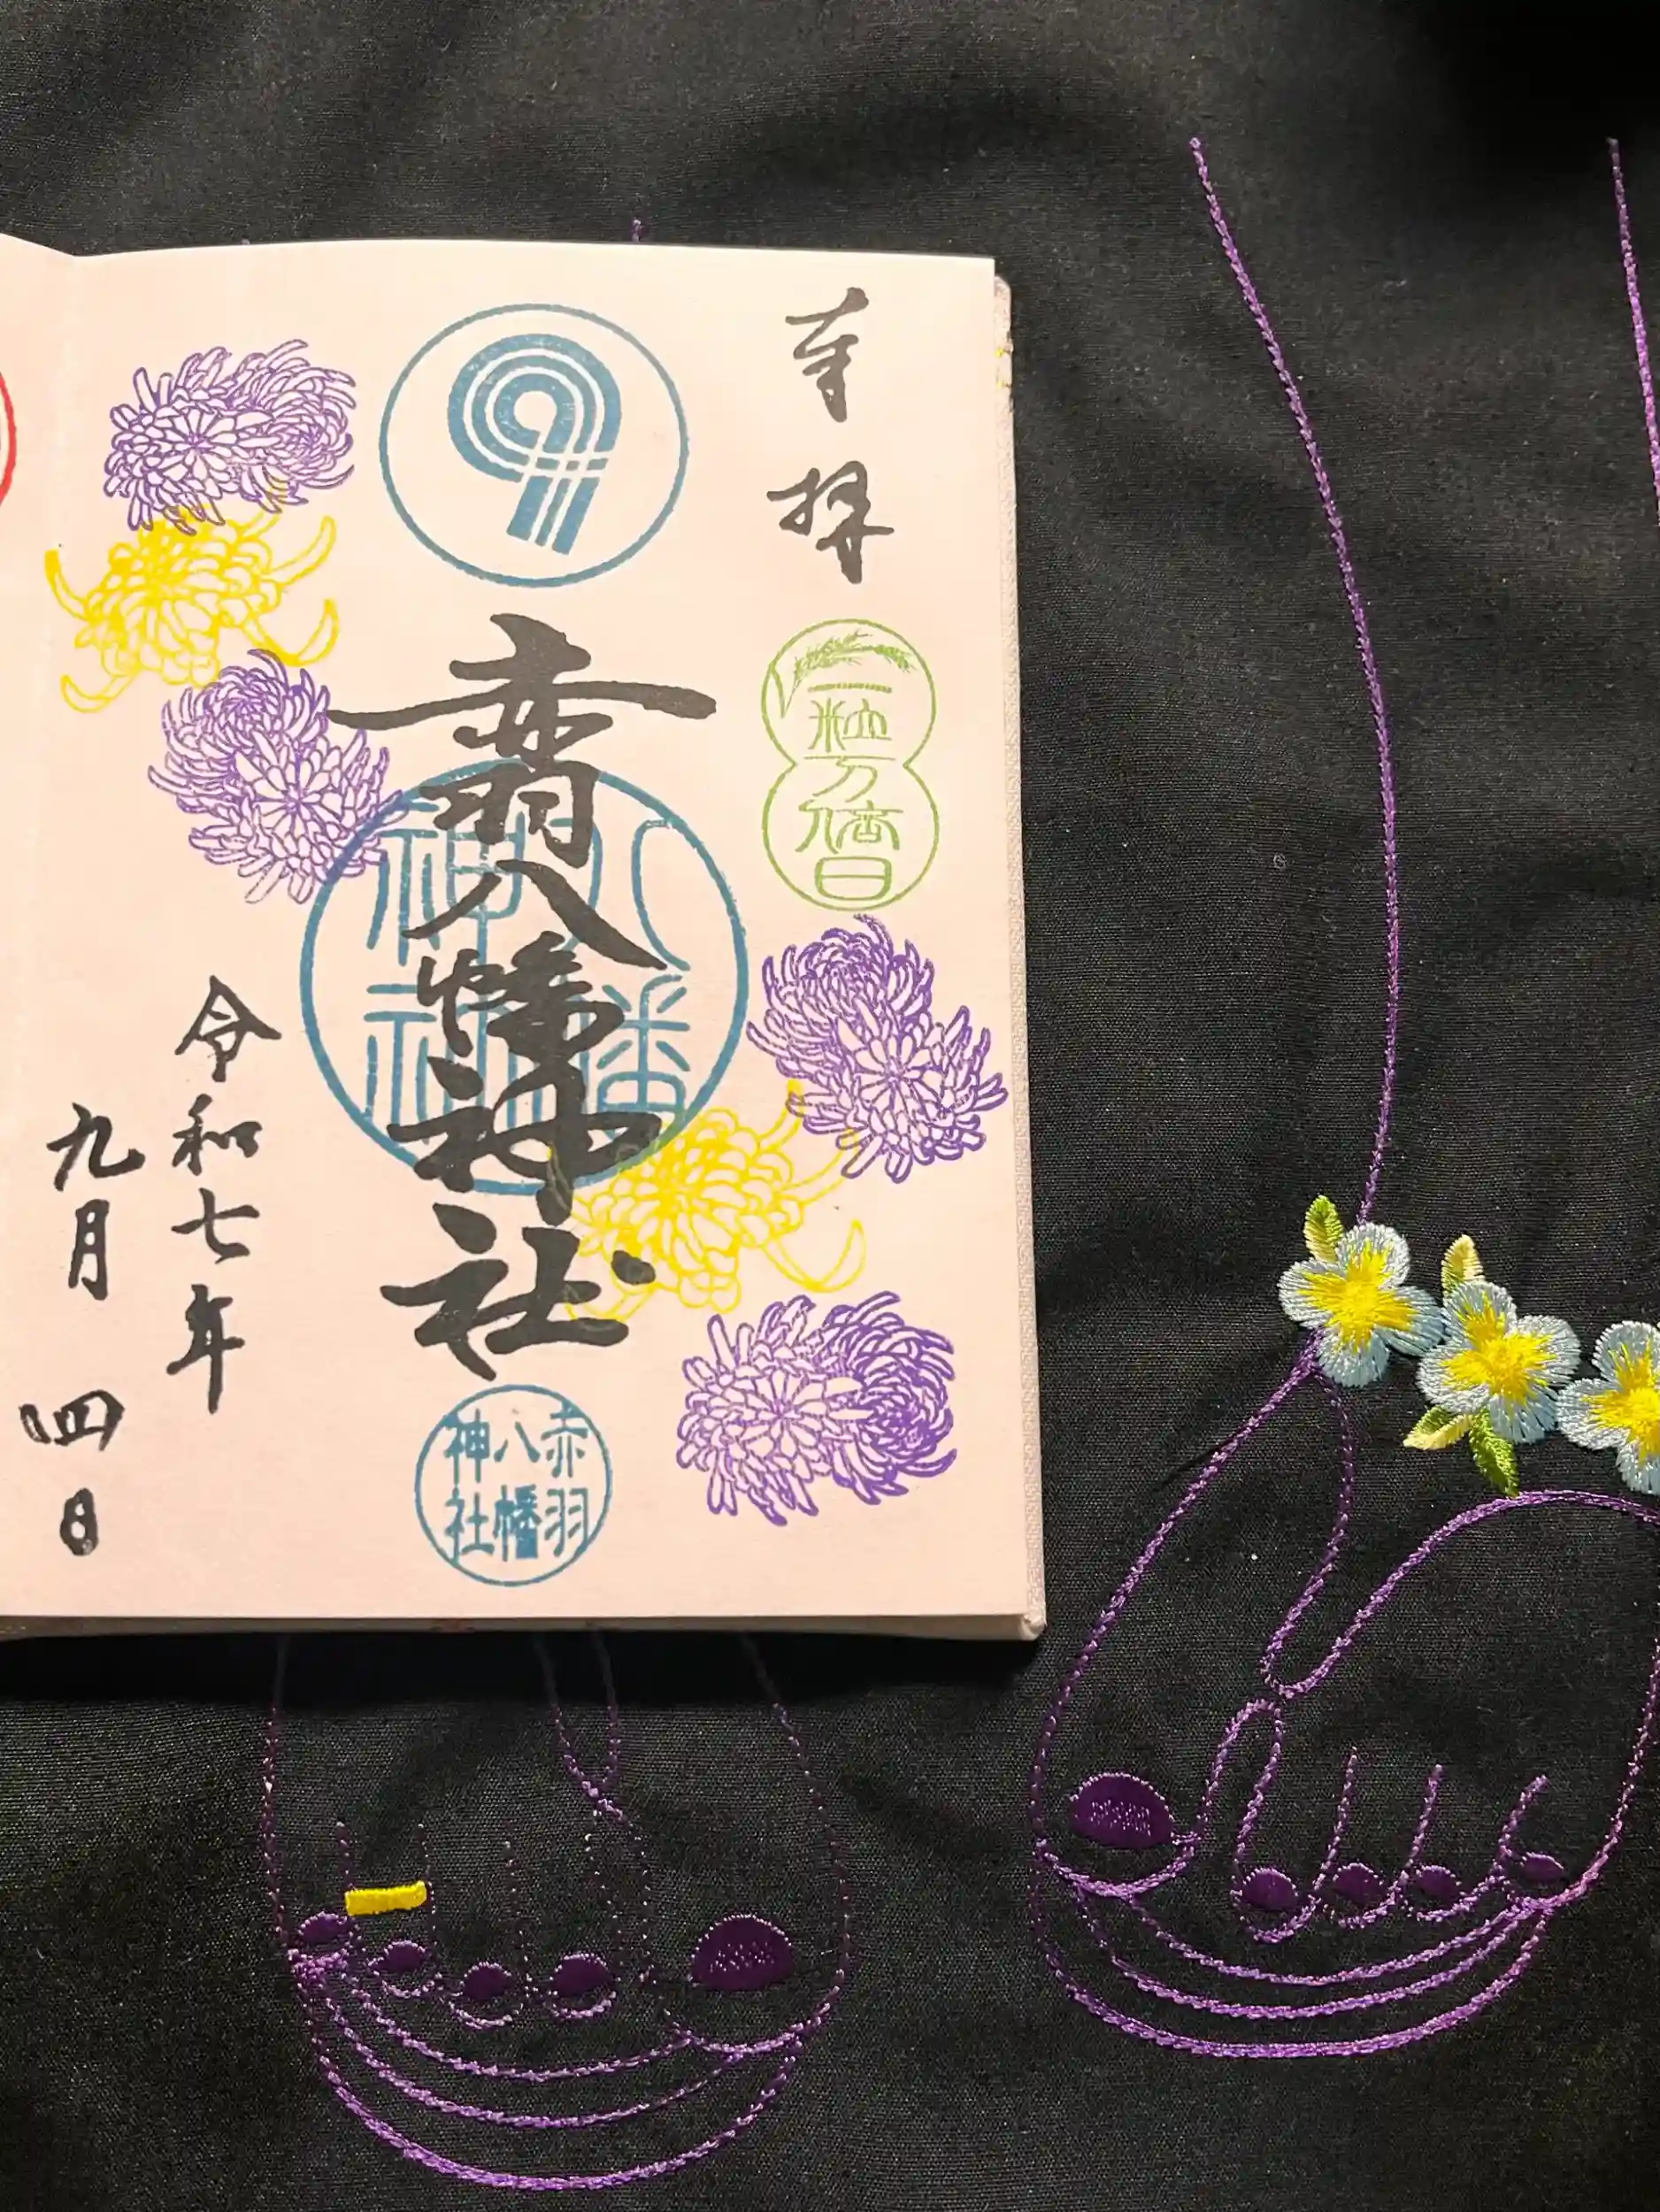 奉拝
一粒万倍日
9
赤羽八幡神社
八幡
神社
赤羽
八幡
神社
令和七年
九月四日